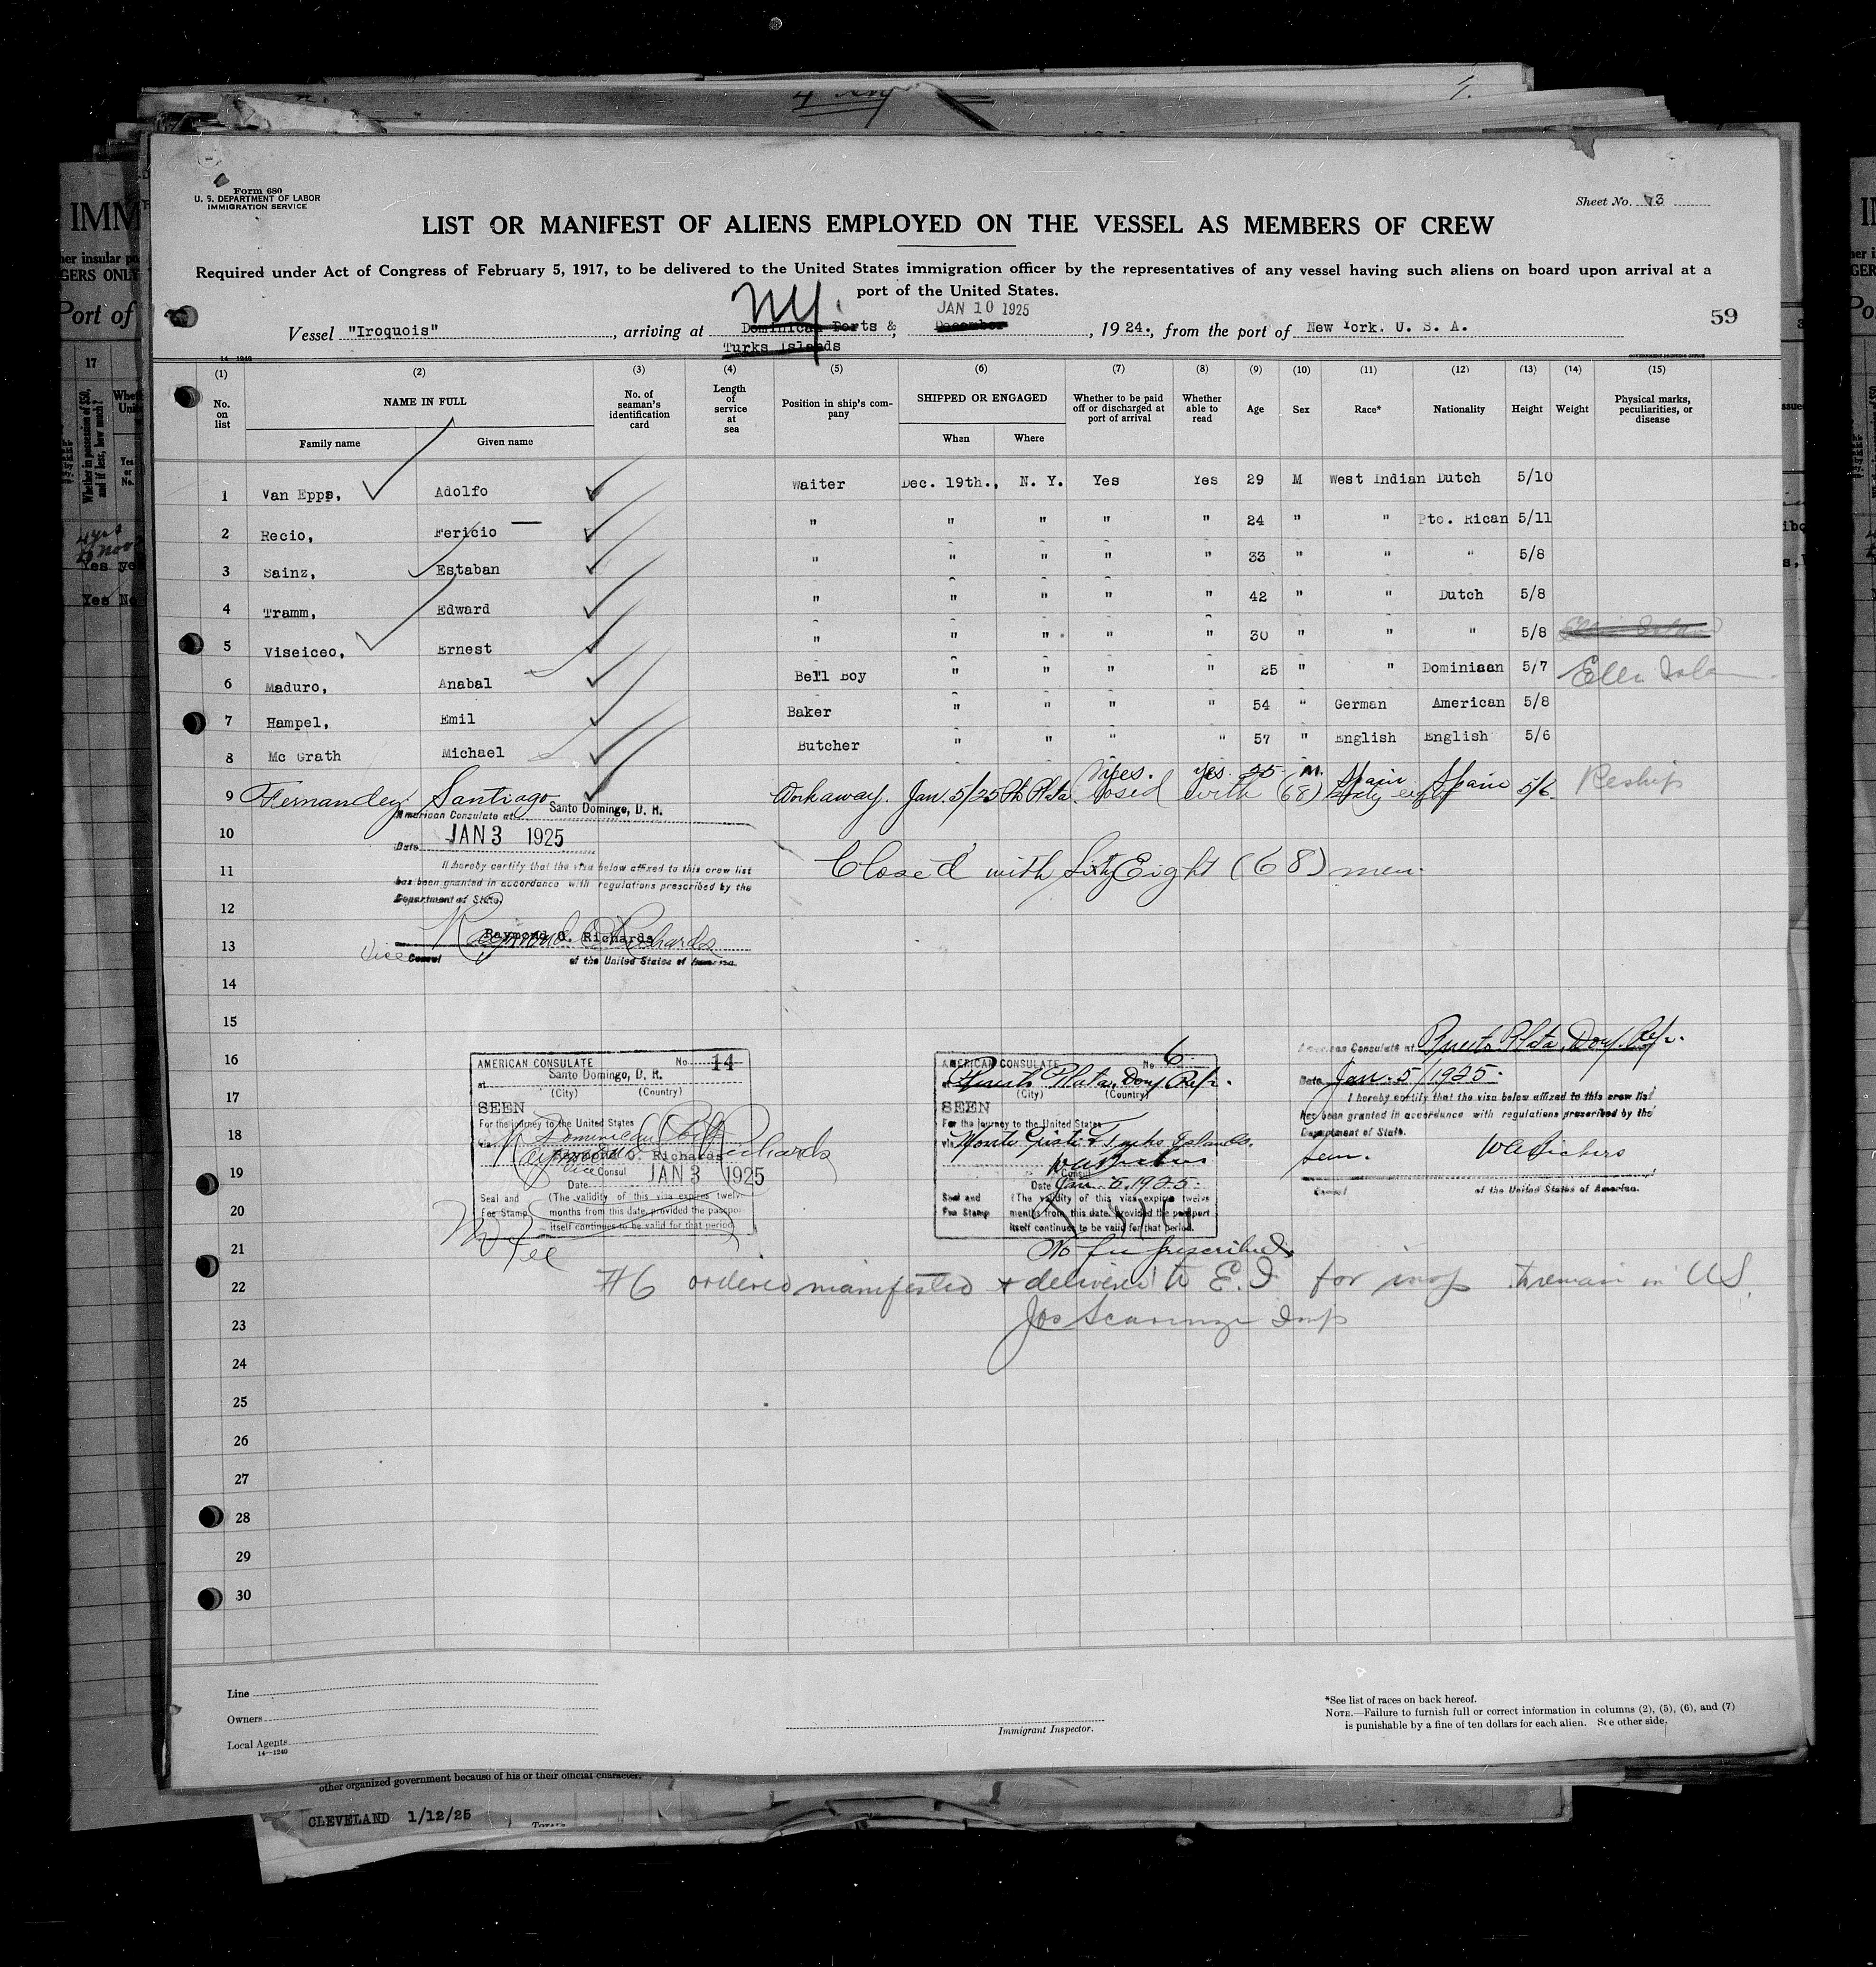 4
1.
Form 680
U. S. DEPARTMENT OF LABOR
IMMIGRATION SERVICE
Sheet No. 3
LIST OR MANIFEST OF ALIENS EMPLOYED ON THE VESSEL AS MEMBERS OF CREW
Required under Act of Congress of February 5, 1917, to be delivered to the United States immigration officer by the representatives of any vessel having such aliens on board upon arrival at a
port of the United States.
NY. JAN 10 1925
Vessel "Iroquois", arriving at Dominican Ports & December, 1924., from the port of New York. U. S. A.
Turks Islands
59
14—1240
GOVERNMENT PRINTING OFFICE
(1) (2) (3) (4) (5) (6) (7) (8) (9) (10) (11) (12) (13) (14) (15)
No. on list NAME IN FULL No. of seaman's identification card Length of service at sea Position in ship's company SHIPPED OR ENGAGED Whether to be paid off or discharged at port of arrival Whether able to read Age Sex Race* Nationality Height Weight Physical marks, peculiarities, or disease
Family name Given name When Where
1 Van Epps, Adolfo Waiter Dec. 19th., N. Y. Yes Yes 29 M West Indian Dutch 5/10
2 Recio, Fericio " " " " " 24 " " Pto. Rican 5/11
3 Sainz, Estaban " " " " " 33 " " " 5/8
4 Tramm, Edward " " " " " 42 " " Dutch 5/8
5 Viseiceo, Ernest " " " " " 30 " " " 5/8
6 Maduro, Anabal Bell Boy " " " " 25 " " Dominiaan 5/7 Ellis Isla
7 Hampel, Emil Baker " " " " 54 " German American 5/8
8 Mc Grath Michael Butcher " " " " 57 " English English 5/6
9 Fernandez Santiago Workaway. Jan 5/25 Pto Plata yes. yes 25 M. Spain Spain 5/6 Reship
Closed with (68) sixty eight
American Consulate at Santo Domingo, D. R.
10
Date JAN 3 1925
I hereby certify that the visa below affixed to this crew list
has been granted in accordance with regulations prescribed by the
Department of State.
11 Closed with Sixty Eight (68) men.
12
Raymond O. Richards
13
Vice Consul of the United States of America.
14
15
American Consulate at Puerto Plata, Dom. Rep.
Date Jan. 5/1925.
I hereby certify that the visa below affixed to this crew list
has been granted in accordance with regulations prescribed by the
Department of State.
Consul of the United States of America.
16
AMERICAN CONSULATE No. 14
at Santo Domingo, D. R.
(City) (Country)
17
SEEN
For the journey to the United States
18
via Dominican
Raymond O. Richards
19
Vice Consul
Date JAN 3 1925
Seal and Fee Stamp (The validity of this visa expires twelve
months from this date, provided the passport
itself continues to be valid for that period)
No Fee
AMERICAN CONSULATE No. 6
at Puerto Plata, Dom Rep.
(City) (Country)
SEEN
For the journey to the United States
via Monte Cristi & Turks Islands.
Consul
Date Jan. 5, 1925.
Seal and Fee Stamp (The validity of this visa expires twelve
months from this date, provided the passport
itself continues to be valid for that period.
No fee prescribed.
20
21
22 #6 ordered manifested & delivered to E.I for insp to remain in US.
23 Insp
24
25
26
27
28
29
30
Line
Owners
Local Agents
14—1240
Immigrant Inspector.
*See list of races on back hereof.
NOTE.—Failure to furnish full or correct information in columns (2), (5), (6), and (7)
is punishable by a fine of ten dollars for each alien. See other side.
other organized government because of his or their official character.
CLEVELAND 1/12/25